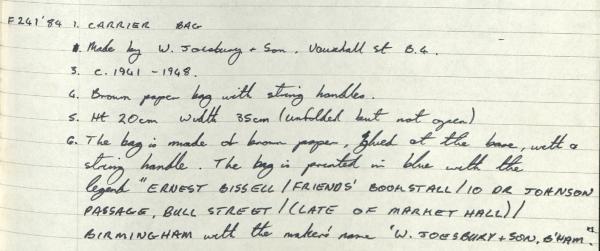 F241'84 1. CARRIER BAG
2. Made by W. Joesbury + Son. Vauxhall St B.4.
3. c. 1941 - 1948.
4. Brown paper bag with string handles.
5. Ht 20cm Width 35cm (unfolded but not open)
6. The bag is made of brown paper, glued at the base, with a
string handle. The bag is printed in blue with the
legend "ERNEST BISSELL/FRIENDS' BOOKSTALL/10 DR JOHNSON
PASSAGE, BULL STREET/(LATE OF MARKET HALL)/
BIRMINGHAM with the maker's name 'W. JOESBURY + SON, B'HAM.'"